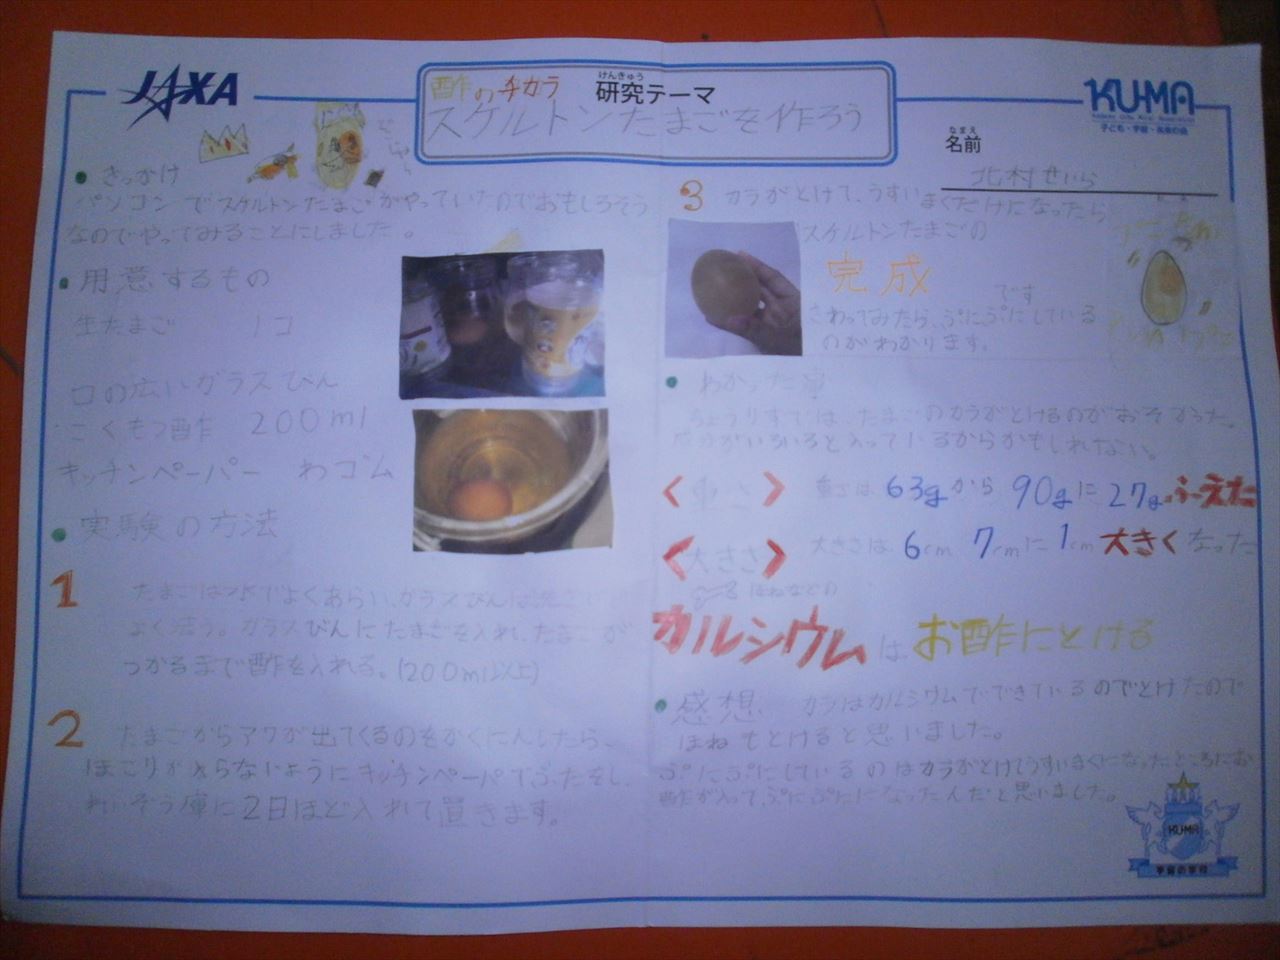 JAXA
酢のチカラ
けんきゅう
研究テーマ
スケルトンたまごを作ろう
KU-MA
子ども・宇宙・未来の会
なまえ
名前
北村せいら
きっかけ
パソコンでスケルトンたまごがやっていたのでおもしろそう
なのでやってみることにしました。
用意するもの
生たまご 1コ
口の広いガラスびん
こくもつ酢 200ml
キッチンペーパー わゴム
実験の方法
1 たまごは水でよくあらい、ガラスびんは
よく洗う。ガラスびんにたまごを入れ、たまごが
つかるまで酢を入れる。(200ml以上)
2 たまごからアワが出てくるのをかくにんしたら、
ほこりが入らないようにキッチンペーパでふたをし、
れいぞう庫に2日ほど入れて置きます。
3 カラがとけて、うすいまくだけになったら
スケルトンたまごの
完成
です
さわってみたら、ぷにぷにしている
のがわかります。
わかった事
ちょうりすでは、たまごのカラがとけるのがおそかった。
成分がいろいろと入っているからかもしれない。
<重さ> 重さは63gから90gに27gふえた
<大きさ> 大きさは6cm 7cmに1cm大きくなった
ほねなどの
カルシウムはお酢にとける
感想 カラはカルシウムでできているのでとけたので
ほねもとけると思いました。
ぷにぷにしているのはカラがとけてうすいまくになったところにお
酢が入って、ぷにぷにになったんだと思いました。
KU-MA
宇宙の学校